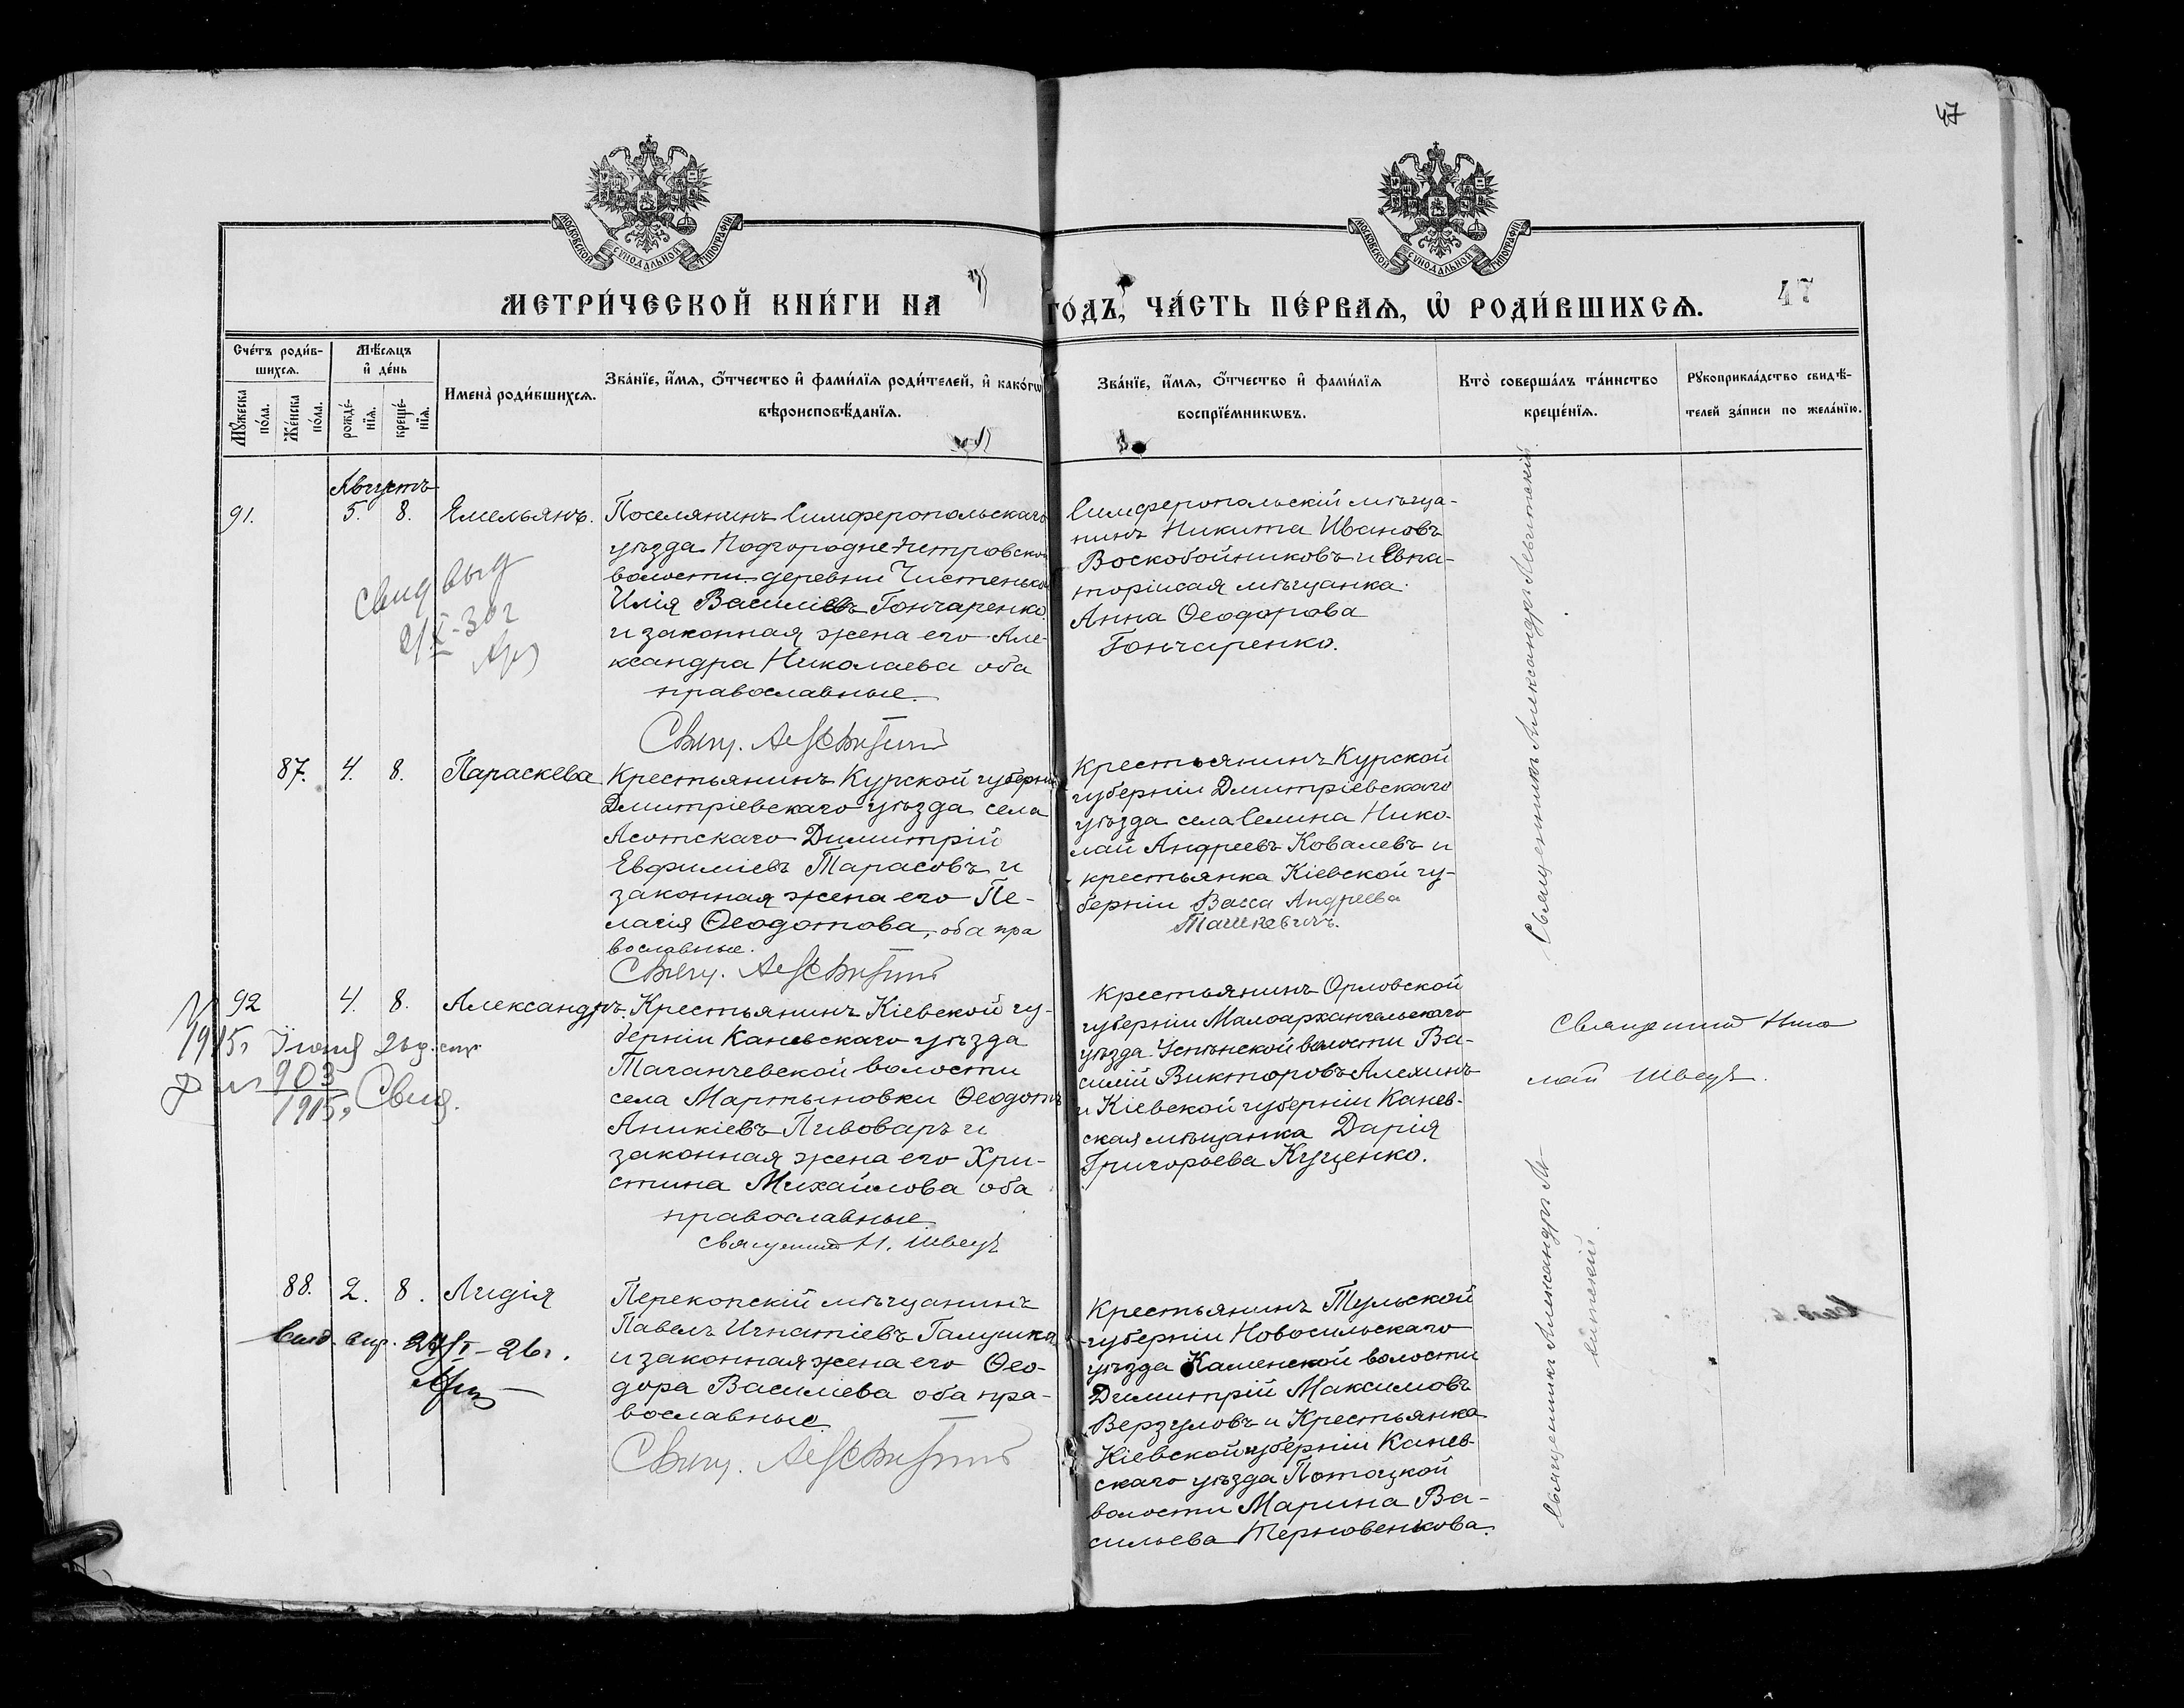 47
МОСКОВСКОЙ СѴНОДАЛЬНОЙ ТИПОГРАФІИ
МОСКОВСКОЙ СѴНОДАЛЬНОЙ ТИПОГРАФІИ
МЕТРИ́ЧЕСКОЙ КНИ́ГИ НА ГО́ДЪ, ЧА́СТЬ ПЕ́РВАѦ, Ѡ РОДИ́ВШИХСѦ.
47
Сче́тъ роди́в-
шихсѧ.
Мꙋ́жеска по́ла.
Же́нска по́ла.
Мѣ́сѧцъ и҆ де́нь
рожде́-нїѧ.
креще́-нїѧ.
И҆мена̀ роди́вшихсѧ.
Зва́нїе, и҆́мѧ, ѻ҆́тчество и҆ фами́лїѧ роди́телей, и҆ како́гѡ
вѣроисповѣ́данїѧ.
Зва́нїе, и҆́мѧ, ѻ҆́тчество и҆ фами́лїѧ
воспрїе́мникѡвъ.
Кто̀ соверша́лъ та́инство
креще́нїѧ.
Рꙋкоприкла́дство свидѣ́-
телей за́писи по жела́нїю.
Августъ
91. 5. 8. Емельянъ.
Поселянинъ Симферопольскаго
уѣзда Подгородне-Петровской
волости деревни Чистенькой
Илія Василіевъ Гончаренко
и законная жена его Але-
ксандра Николаева оба
православные.
Свящ.
Симферопольскій мѣща-
нинъ Никита Ивановъ
Воскобойниковъ и Евпа-
торійская мѣщанка
Анна Ѳеодорова
Гончаренко.
Священникъ Александръ
Свид выд
2/X-30г
87. 4. 8. Параскева
Крестьянинъ Курской губерніи
Дмитріевскаго уѣзда села
Асотскаго Димитрій
Евфиміевъ Тарасовъ и
законная жена его Пе-
лагія Ѳеодотова, оба пра
вославные.
Свящ.
Крестьянинъ Курской
губерніи Дмитріевскаго
уѣзда села Селина Нико-
лай Андреевъ Ковалевъ и
крестьянка Кіевской гу-
берніи Васса Андреева
Ташкевичъ.
92 4. 8. Александръ.
Крестьянинъ Кіевской гу-
берніи Каневскаго уѣзда
Таганчевской волости
села Мартыновки Ѳеодотъ
Аникіевъ Пивоваръ и
законная жена его Хри-
стина Михайлова оба
православные
священникъ Н. Швецъ
Крестьянинъ Орловской
губерніи Малоархангельскаго
уѣзда волости Ва-
силій Викторовъ Алехинъ
и Кіевской губерніи Канев-
ская мѣщанка Дарія
Григорьева Куценко.
Священникъ Нико
лай Швецъ.
1915г Іюня
903
1915г Свид.
88. 2. 8. Лидія
Перекопскій мѣщанинъ
Павелъ Игнатіевъ Галушка
и законная жена его Ѳео-
дора Василіева оба пра-
вославные
Свящ.
Крестьянинъ Тульской
губерніи Новосильскаго
уѣзда Каменской волости
Димитрій Максимовъ
Верзуловъ и Крестьянка
Кіевской губерніи Канев-
скаго уѣзда Потоцкой
волости Марина Ва-
сильева Терновенькова.
Священникъ Александръ
Свид. - 26г.